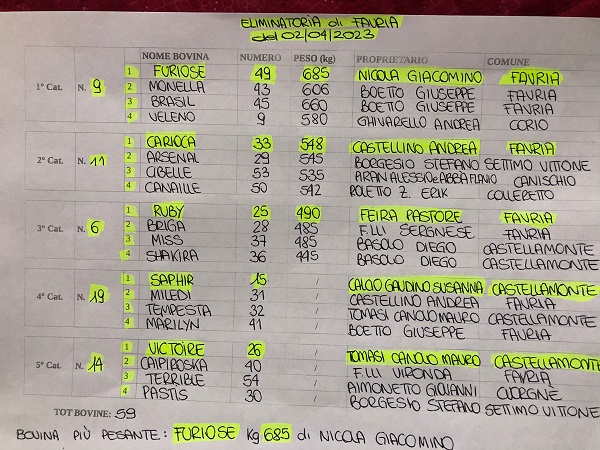 ELIMINATORIA di FAVRIA
del 02/04/2023
NOME BOVINA NUMERO PESO (kg) PROPRIETARIO COMUNE
1° Cat. N. 9
1 FURIOSE 49 685 NICOLA GIACOMINO FAVRIA
2 MONELLA 43 606 BOETTO GIUSEPPE FAVRIA
3 BRASIL 45 660 BOETTO GIUSEPPE FAVRIA
4 VELENO 9 580 GHIVARELLO ANDREA CORIO
2° Cat. N. 11
1 CARIOCA 33 548 CASTELLINO ANDREA FAVRIA
2 ARSENAL 29 545 BORGESIO STEFANO SETTIMO VITTONE
3 CIBELLE 53 535 CANISCHIO
4 CANAILLE 50 542 ROLETTO Z. ERIK COLLERETTO
3° Cat. N. 6
1 RUBY 25 490 FEIRA PASTORE FAVRIA
2 BRIGA 28 485 F.LLI SERGNESE FAVRIA
3 MISS 37 485 BASOLO DIEGO CASTELLAMONTE
4 SHAKIRA 36 445 BASOLO DIEGO CASTELLAMONTE
4° Cat. N. 19
1 SAPHIR 15 / CALCIO GAUDINO SUSANNA CASTELLAMONTE
2 MILEDI 31 / CASTELLINO ANDREA FAVRIA
3 TEMPESTA 32 / TOMASI CANOLO MAURO CASTELLAMONTE
4 MARILYN 41 / BOETTO GIUSEPPE FAVRIA
5° Cat. N. 14
1 VICTOIRE 26 / TOMASI CANOLO MAURO CASTELLAMONTE
2 CAIPIROSKA 40 / F.LLI VIRONDA FAVRIA
3 TERRIBLE 54 / AIMONETTO GIOVANNI CUORGNE
4 PASTIS 30 / BORGESIO STEFANO SETTIMO VITTONE
TOT BOVINE: 59
BOVINA PIÙ PESANTE: FURIOSE Kg 685 di NICOLA GIACOMINO